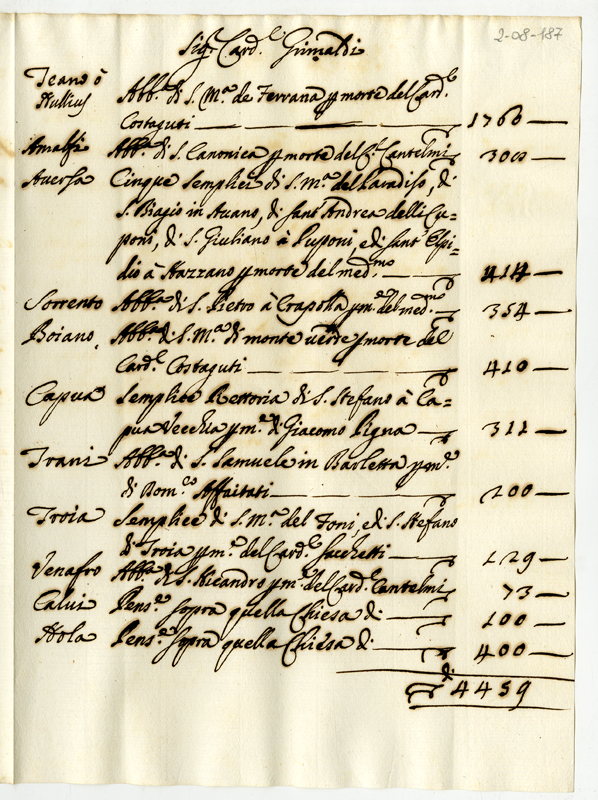 2-08-187
Sig.r Card.l Grimaldi
Teano ò Abb.a di S. M.a de Ferrana p morte del Card.l
Nullius
Costaguti 1768
Amalfi Abb.a di S. Canonica p morte del C. Cantelmi 300
Aversa Cinque semplici di S. M.a del Paradiso, di
S. Biagio in Avano, di sant'Andrea delli Cu=
poni, di S. Giuliano à Pupone, e di sant'Elpi=
dio à Nazzano p morte del med.mo 414
Sorrento Abb.a di S. Pietro à Crapolla p m.e del med.mo 354
Boiano Abb.a di S. M.a di monte verde p morte del
Card.l Costaguti 410
Capua Semplice Rettoria di S. Stefano à Ca=
pua Vecchia p m.e di Giacomo Pigna 311
Trani Abb.a di S. Samuele in Barletta p m.e
di Dom.co Affaitati 200
Troia Semplice di S. M.a del Toni, e di S. Stefano
di Troia p m.e del Card.l Sacchetti 129
Venafro Abb.a di S. Nicandro p m.e del Card.l Cantelmi 73
Calvi Pens.e sopra quella Chiesa di 100
Nola Pens.e sopra quella Chiesa di 400
4459